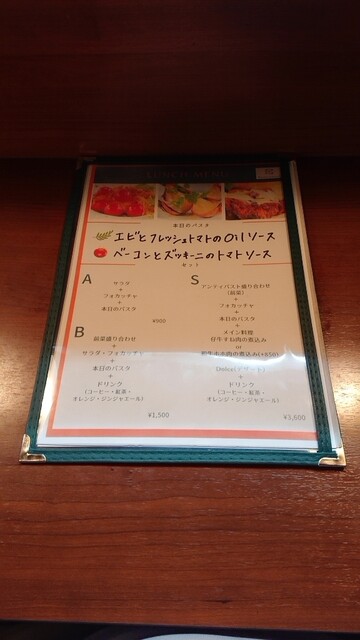 LUNCH MENU
本日のパスタ
エビとフレッシュトマトのOilソース
ベーコンとズッキーニのトマトソース
セット
A
サラダ
+
フォカッチャ
+
本日のパスタ
¥900
B
前菜盛り合わせ
+
サラダ・フォカッチャ
+
本日のパスタ
+
ドリンク
(コーヒー・紅茶・
オレンジ・ジンジャエール)
¥1,500
S
アンティパスト盛り合わせ
(前菜)
+
フォカッチャ
+
本日のパスタ
+
メイン料理
仔牛すね肉の煮込み
or
和牛ホホ肉の煮込み(+850)
+
Dolce(デザート)
+
ドリンク
(コーヒー・紅茶・
オレンジ・ジンジャエール)
¥3,600